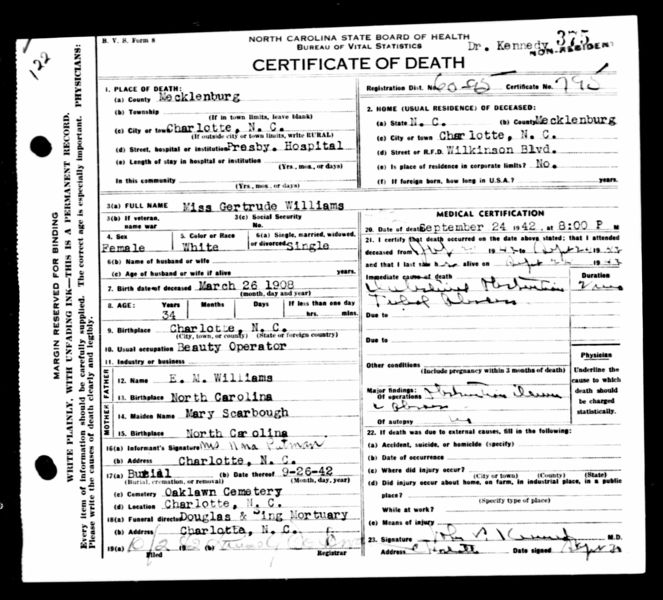 122
B. V. S. Form 8
NORTH CAROLINA STATE BOARD OF HEALTH
BUREAU OF VITAL STATISTICS
Dr. Kennedy 375
NON-RESIDENT
CERTIFICATE OF DEATH
Registration Dist. No. 60-95 Certificate No. 795
MARGIN RESERVED FOR BINDING
WRITE PLAINLY, WITH UNFADING INK—THIS IS A PERMANENT RECORD.
Every item of information should be carefully supplied. The correct age is especially important. PHYSICIANS:
Please write the causes of death clearly and legibly.
1. PLACE OF DEATH:
(a) County Mecklenburg
(b) Township
(If in town limits, leave blank)
(c) City or town Charlotte, N. C.
(If outside city or town limits, write RURAL)
(d) Street, hospital or institution Presby. Hospital
(e) Length of stay in hospital or institution
(Yrs., mos., or days)
In this community
(Yrs., mos., or days)
2. HOME (USUAL RESIDENCE) OF DECEASED:
(a) State N. C. (b) County Mecklenburg
(c) City or town Charlotte, N. C.
(d) Street or R.F.D. Wilkinson Blvd.
(e) Is place of residence in corporate limits? No.
(f) If foreign born, how long in U.S.A.? years
3(a) FULL NAME Miss Gertrude Williams
3(b) If veteran, name war
3(c) Social Security No.
4. Sex
Female
5. Color or Race
White
6(a) Single, married, widowed, or divorced Single
6(b) Name of husband or wife
(c) Age of husband or wife if alive years.
7. Birth date of deceased March 26 1908
(month, day and year)
8. AGE: Years Months Days If less than one day
34 hrs. min.
9. Birthplace Charlotte, N. C.
(City, town, or county) (State or foreign country)
10. Usual occupation Beauty Operator
11. Industry or business
FATHER
12. Name E. M. Williams
13. Birthplace North Carolina
MOTHER
14. Maiden Name Mary Scarbough
15. Birthplace North Carolina
16(a) Informant's Signature Mrs
(b) Address Charlotte, N. C.
17(a) Burial (b) Date thereof 9-26-42
(Burial, cremation, or removal) (Month, day, year)
(c) Cemetery Oaklawn Cemetery
(d) Location Charlotte, N. C.
18(a) Funeral director Douglas & ing Mortuary
(b) Address Charlotte, N. C.
19(a) 10/2
Filed Registrar
MEDICAL CERTIFICATION
20. Date of death September 24 1942, at 8:00 P M
21. I certify that death occurred on the date above stated; that I attended
deceased from
and that I last saw alive on
Immediate cause of death Duration
Due to
Due to
Other conditions
(Include pregnancy within 3 months of death)
Major findings:
Of operations
Of autopsy
Physician
Underline the cause to which death should be charged statistically.
22. If death was due to external causes, fill in the following:
(a) Accident, suicide, or homicide (specify)
(b) Date of occurrence
(c) Where did injury occur?
(City or town) (County) (State)
(d) Did injury occur about home, on farm, in industrial place, in a public
place?
(Specify type of place)
While at work?
(e) Means of injury
23. Signature M.D.
Address Date signed